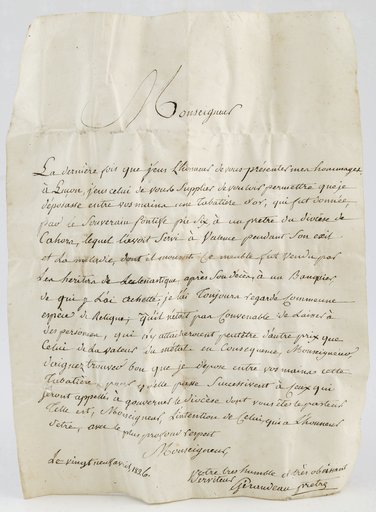 Monseigneur
La dernière fois que j'eus l'honneur de vous présenter mes hommages
à Luçon, j'eus celui de vous supplier de vouloir permettre que je
déposasse entre vos mains une Tabatière d'or, qui fut donnée,
par le Souverain pontife pie six à un prêtre du diocèse de
Cahors, lequel l'avoit Servi à Valence pendant Son exil
et la maladie, dont il mourut. Ce meuble fut vendu par
Les héritiers de l'ecclésiastique, après Son décès, à un Banquier
de qui je L'ai achetté; je l'ai Toujours regardé comme une
espèce de Relique; qu'il n'étoit pas Convenable de Laisser à
des personnes, qui n'y attacheroient peutêtre d'autre prix que
Celui de La valeur du métal. en Conséquence, Monseigneur
daignez trouver bon que je dépose entre vos mains cette
Tabatière, pour qu'elle passe Successivement à Ceux qui
Seront appellés à gouverner le diocèse dont vous êtes le pasteur
Telle est, Monseigneur, L'intention de Celui, qui a L'honneur
d'être, avec le plus profond respect
Monseigneur,
Le vingt neuf avril 1836.
Votre très humble et très obéissant
Serviteur Giraudeau prêtre